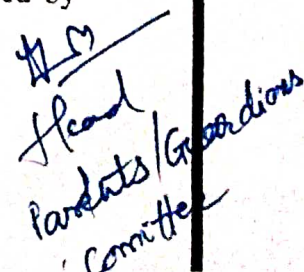 by
Head
Parents/Guardians
Committee